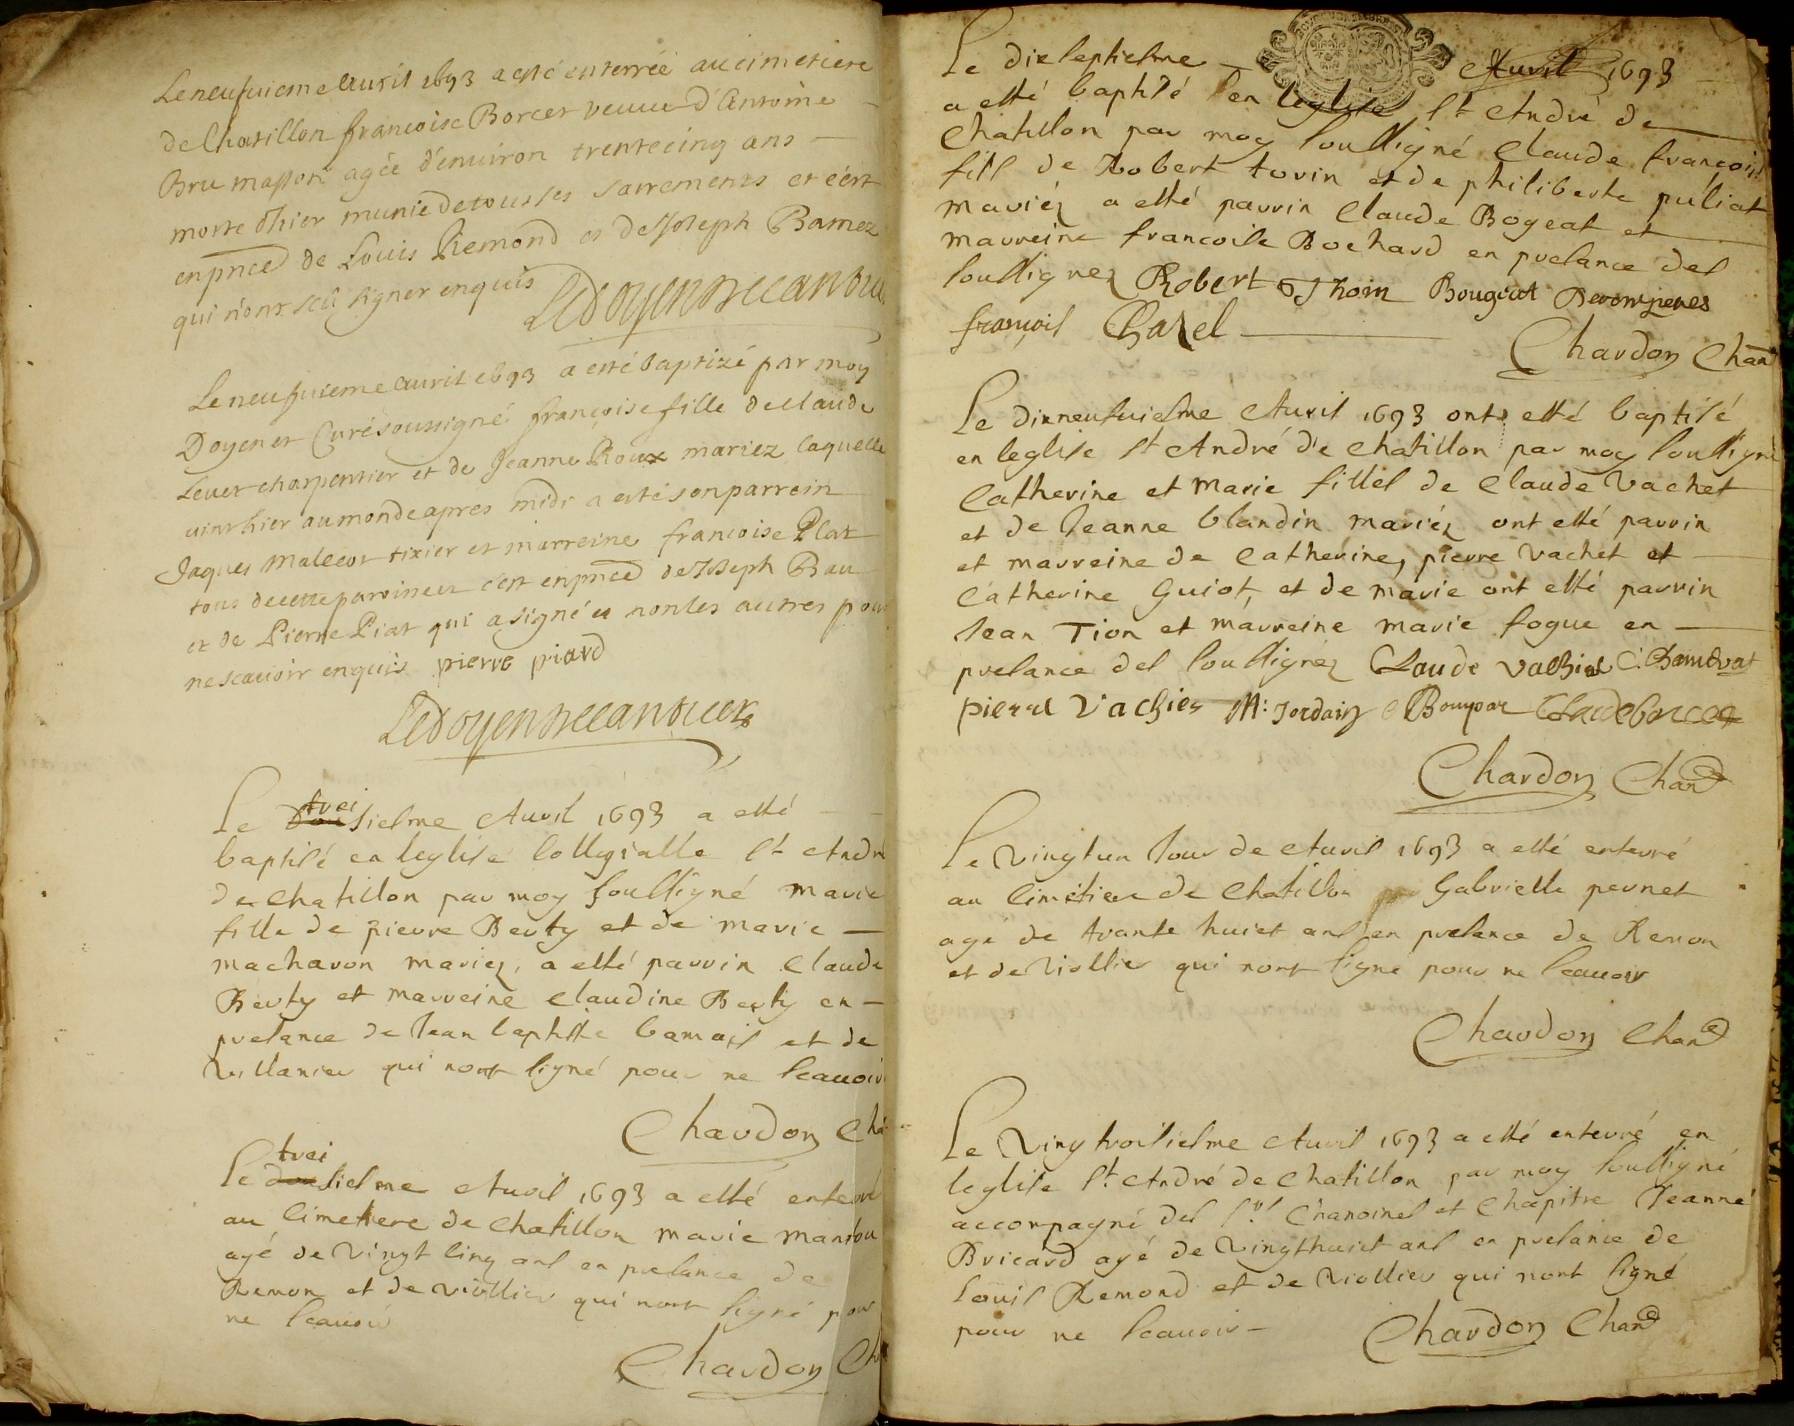 Le neufuiesme Auril 1693 a esté enterrée au cimetiere
de Chatillon françoise Borcet veuue d'Antoine
Bru masson agée d'enuiron trente cinq ans
morte d'hier munie de tous ses sacrements et c'est
en pnce de Louis Remond et de Joseph Bamez
qui n'ont sceu signer enquis Ledoyen Decanduer
Le neufuieme auril 1693 a esté baptizé par moy
Doyen et Curé soussigné françoise fille de Claude
Leuet charpentier et de Jeanne Rioux mariez laquelle
uint hier au monde apres midi a esté son parrein
Jaques Malecot tixier et marreine francoise Plat
tous de cette paroisse et c'est en pnce de Joseph Bau
et de Pierre Piat qui a signé et non les autres pour
ne scauoir enquis pierre piard
Ledoyen Decanduer
Le trei siesme Auril 1693 a esté
baptisé en leglise Collegialle St André
de Chatillon par moy soussigné marie
fille de pierre Berty et de marie
macharon mariez, a esté parrin Claude
Berty et marreine Claudine Berty en
presance de Jean baptiste bamais et de
Villanier qui nont signé pour ne scauoir
Chardon Cha
Le trei siesme Auril 1693 a esté enterré
au Cimetiere de Chatillon marie mantou
agé de Vingt Cinq ans en presance de
Remon et de Viollier qui nont signé pour
ne scauoir
Chardon Ch
Le dixseptiesme Auril 1693
a esté baptisé en leglise St André de
Chatillon par moy soussigné Claude françois
fils de Robert torin et de philiberte puliat
mariéz a esté parrin Claude Bogeat et
marreine francoise Bochard en presance des
soussignez Robert Thorin Bougeat
françois Chazel
Chardon Chan
Le dixneufuiesme Auril 1693 ont esté baptisé
en leglise St André de Chatillon par moy soussigné
Catherine et marie filles de Claude Vachet
et de Jeanne blandin mariéz ont esté parrin
et marreine de Catherine, pierre Vachet et
Catherine Guiot, et de marie ont esté parrin
Jean Tion et marreine marie fogue en
presance des soussignez Claude Vachier C. Chamdvat
pierre Vachier M: Jordain Bompar
Chardon Chand
Le Vingtun Jour de Auril 1693 a esté enterré
au Cimetiere de Chatillon Gabrielle pernet
agé de trante huict ans en presance de Remon
et de Viollier qui nont signé pour ne scauoir
Chardon Chand
Le Vingtroisiesme Auril 1693 a esté enterré en
leglise St André de Chatillon par moy soussigné
accompagné des Srs Chanoines et Chapitre Jeanne
Bricard agé de Vingthuict ans en presance de
Louis Remond et de Viollier qui nont signé
pour ne scauoir Chardon Chand